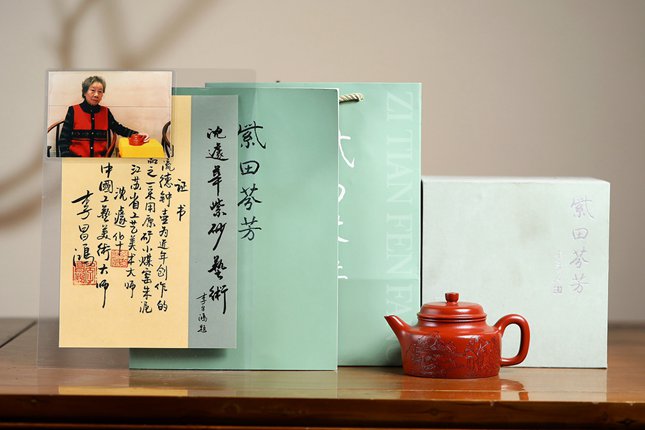 证书
流德钟壶为近年创作的
品之一采用原矿小煤窑朱泥
江苏省工艺美术大师
沈遽华
中國工艺美術大师
李昌鴻
沈遽華紫砂藝術
李昌鴻题
紫田芬芳
ZI TIAN FEN FA
紫田芬芳